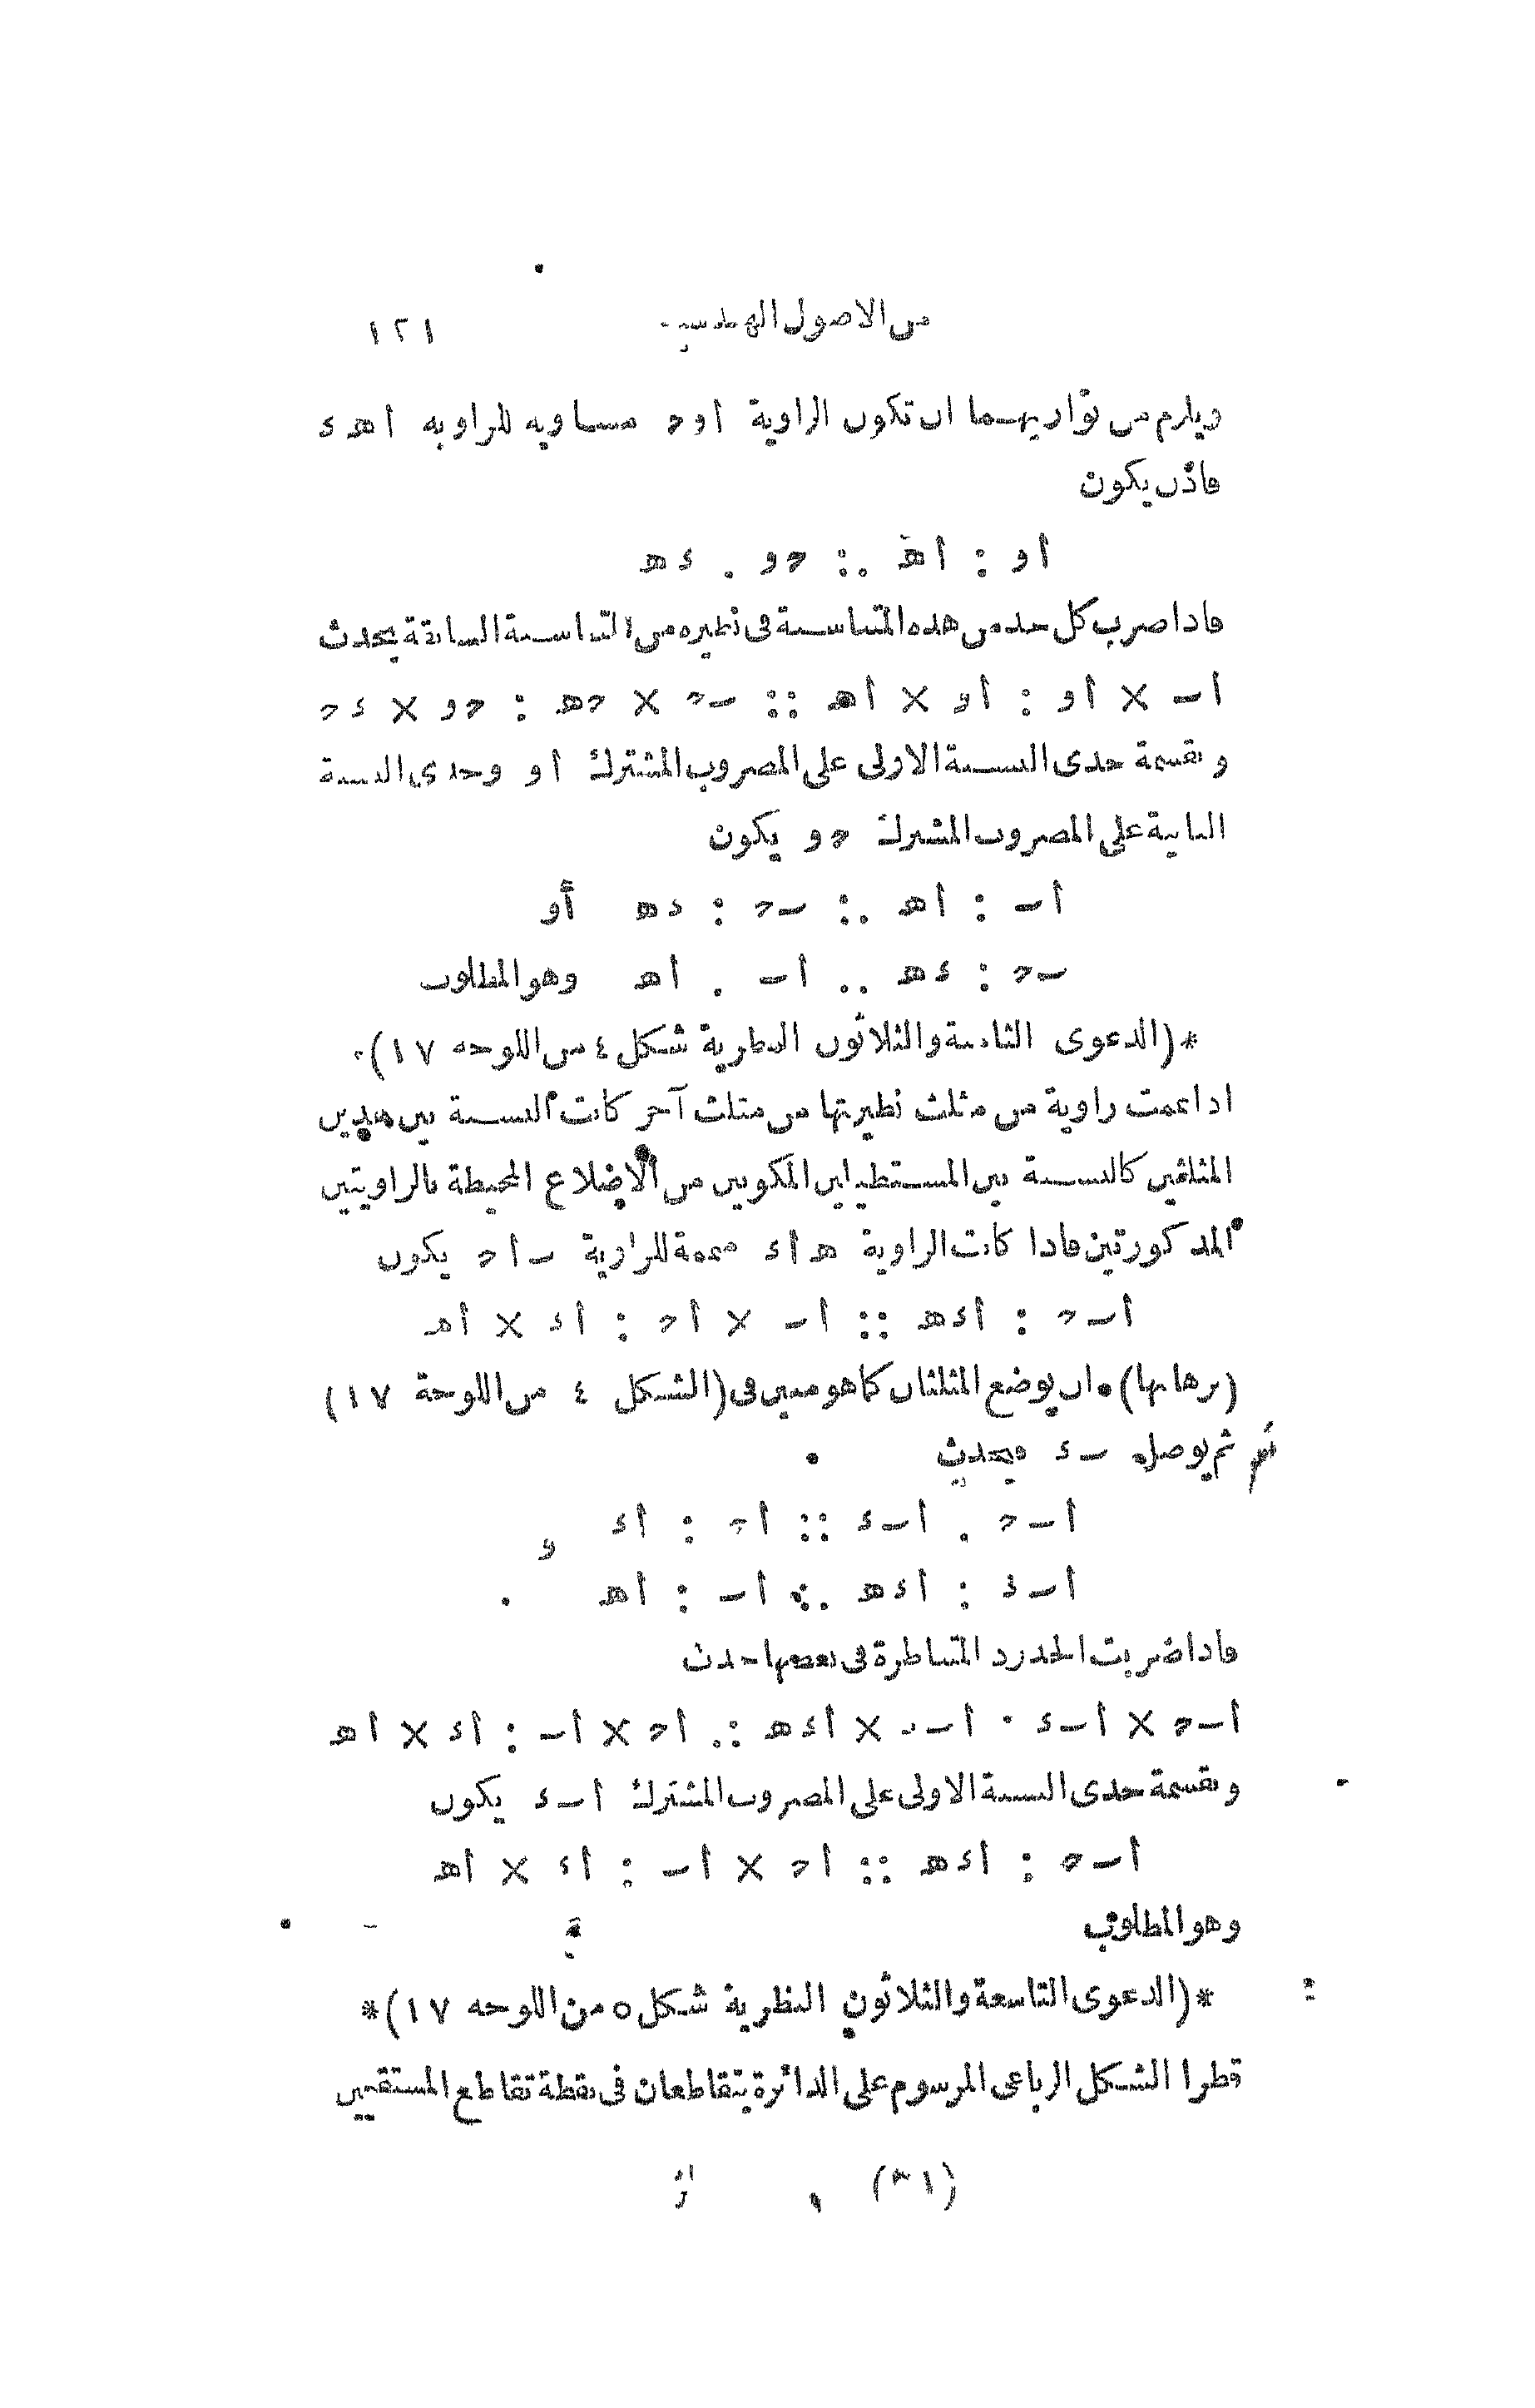 من الاصول الهندسية ١٢١
ويلزم من توازيهما ان تكون الزاوية أو ح مساويه للزاويه أ ه ء
فاذن يكون
أو : أه :: ح و : ء ه
فاذا ضرب كل حد من هذه المتناسبة فى نظيره من المتناسبة السابقة يحدث
أ ب × أو : أو × أه :: ب ح × ح ه : ح و × ء ح
وبقسمة حدى النسبة الاولى على المضروب المشترك أو وحدى النسبة
الثانية على المضروب المشترك ح و يكون
أ ب : أه :: ب ح : ء ه أو
ب ح : ء ه :: أ ب : أه وهو المطلوب
*(الدعوى الثامنة والثلاثون النظرية شكل ٤ من اللوحه ١٧)*
اذا تممت زاوية من مثلث نظيرتها من مثلث آخر كانت النسبة بين هذين
المثلثين كالنسبة بين المستطيلين المكونين من الاضلاع المحيطة بالزاويتين
المذكورتين فاذا كانت الزاوية ه أ ء متممة للزاوية ب أ ح يكون
أ ب ح : أ ء ه :: أ ب × أ ح : أ ء × أه
(برهانها) ان يوضع المثلثان كما هو مبين فى (الشكل ٤ من اللوحة ١٧)
ثم يوصل ب ء فيحدث
أ ب ح : أ ب ء :: أ ح : أ ء و
أ ب ء : أ ء ه :: أ ب : أه
فاذا ضربت الحدود المتناظرة فى بعضها حدث
أ ب ح × أ ب ء : أ ب ء × أ ء ه :: أ ح × أ ب : أ ء × أه
وبقسمة حدى النسبة الاولى على المضروب المشترك أ ب ء يكون
أ ب ح : أ ء ه :: أ ح × أ ب : أ ء × أه
وهو المطلوب
*(الدعوى التاسعة والثلاثون النظرية شكل ٥ من اللوحه ١٧)*
قطرا الشكل الرباعى المرسوم على الدائرة يتقاطعان فى نقطة تقاطع المستقيمين